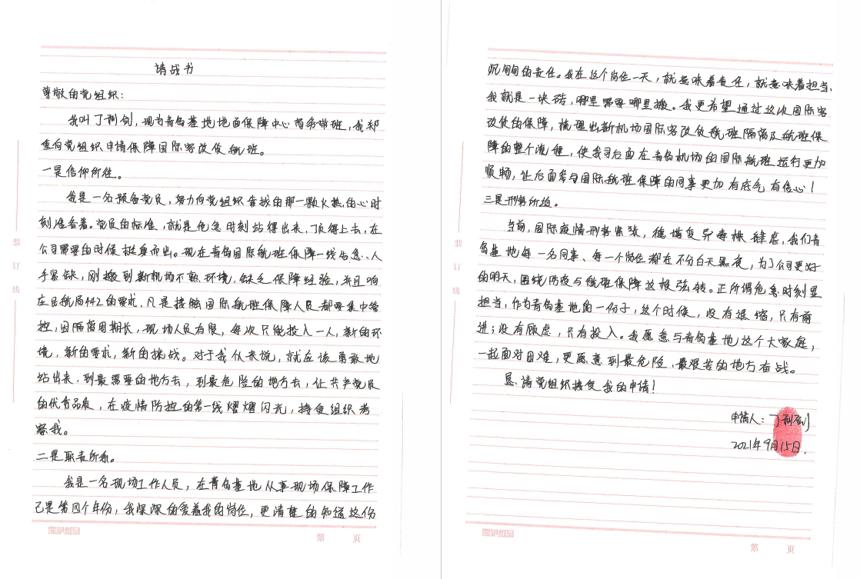 请战书
尊敬的党组织：
我叫丁利剑，现为青岛基地地面保障中心商务带班，我郑
重向党组织申请保障国际客改货航班。
一是信仰所在。
我是一名预备党员，努力向党组织靠拢的那一颗火热的心时
刻准备着。党员的标准，就是危急时刻站得出来，顶得上去，在
公司需要的时候挺身而出。现在青岛国际航班保障一线告急，人
手紧缺，刚搬到新机场不熟环境，缺乏保障经验，并且响
应民航局142的要求，凡是接触国际航班保障人员都要集中管
控，因隔离周期长，现场人员有限，每次只能投入一人，新的环
境，新的要求，新的挑战。对于我们来说，就应该勇敢地
站出来，到最需要的地方去，到最危险的地方去，让共产党员
的优秀品质，在疫情防控的第一线熠熠闪光，接受组织考
察我。
二是职责所系。
我是一名现场工作人员，在青岛基地从事现场保障工作
已是第四个年份，我深深的爱着我的岗位，更清楚的知道这份
沉甸甸的责任。我在这个岗位一天，就意味着责任，就意味着担当，
我就是一块砖，哪里需要哪里搬。我更希望通过这次国际客
改货的保障，梳理出新机场国际客改货航班隔离及航班保
障的整个流程，使我司后面在青岛机场的国际航班运行更加
顺畅，让后面参与国际航班保障的同事更加有底气有信心！
三是形势所迫。
当前，国际疫情形势紧张，德塔变异毒株肆虐，我们青
岛基地每一名同事、每一个岗位都在不分白天黑夜，为了公司更好
的明天，围绕防疫与航班保障这根弦转。正所谓危急时刻显
担当，作为青岛基地的一份子，这个时候，没有退缩，只有前
进；没有顾虑，只有投入。我愿意与青岛基地这个大家庭，
一起面对困难，更愿意到最危险、最艰苦的地方奋战。
恳请党组织接受我的申请！
申请人：丁利剑
2021年9月15日.
装
订
线
第 页
装
订
线
第 页